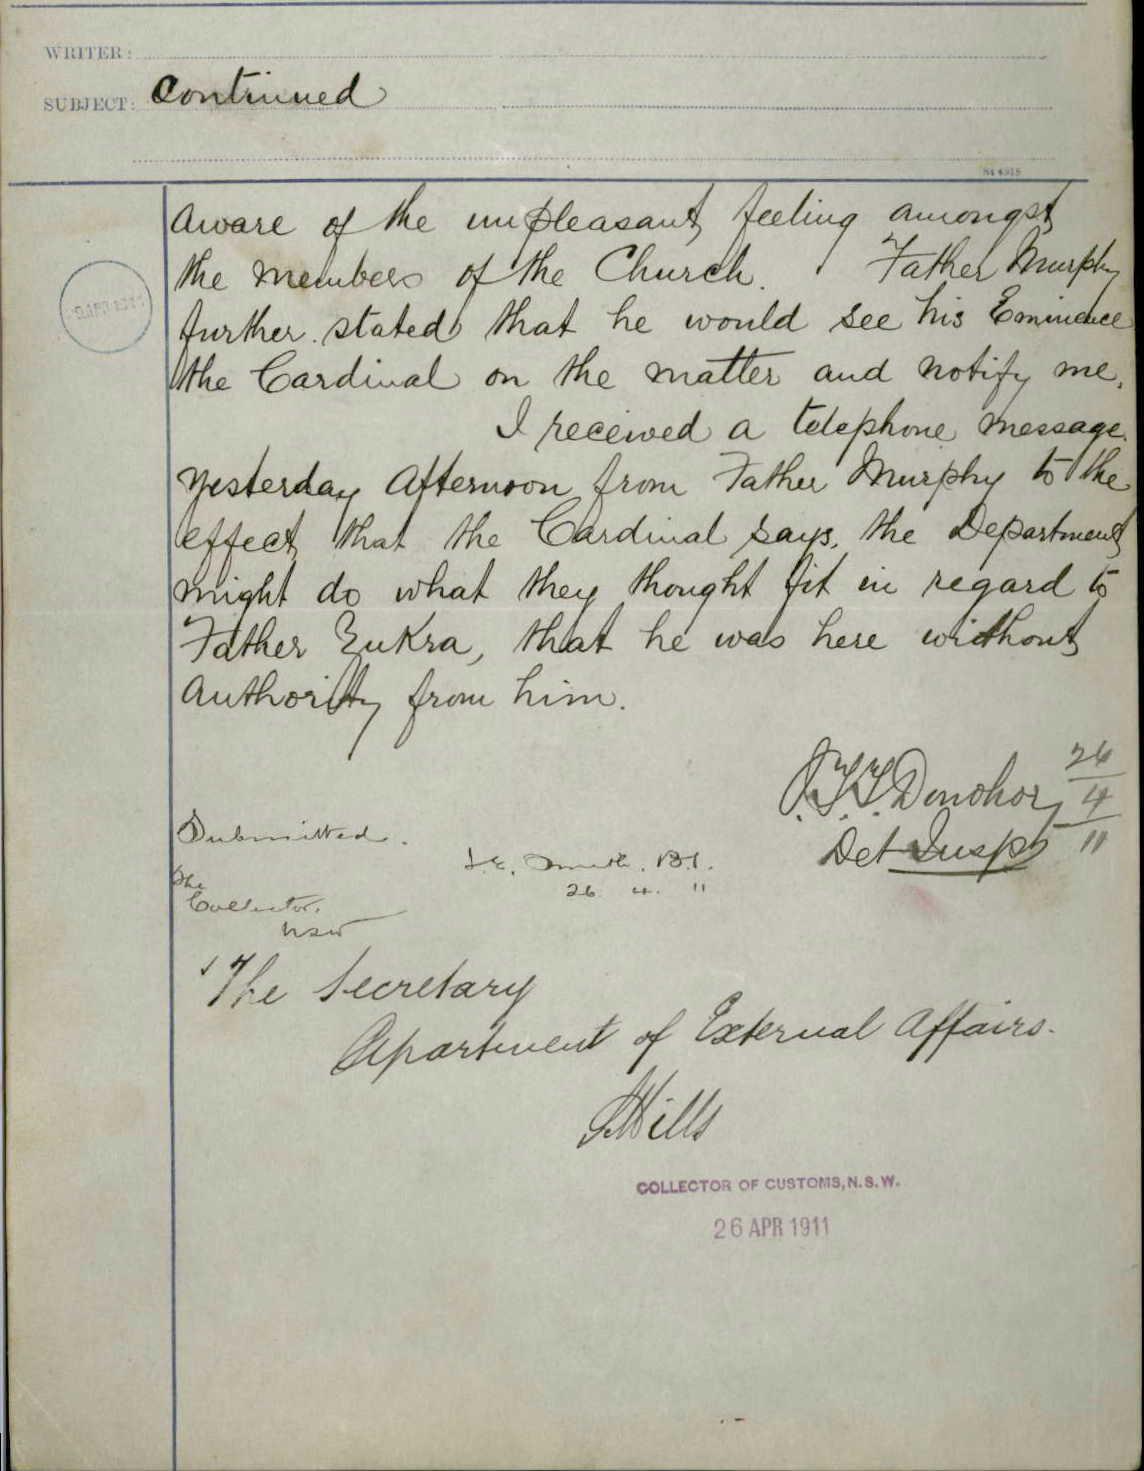 WRITER:
SUBJECT: Continued
aware of the unpleasant feeling amongst
the members of the Church. Father Murphy
further stated that he would see his Eminence
the Cardinal on the matter and notify me.
I received a telephone message
yesterday afternoon from Father Murphy to the
effect that the Cardinal says, the Department
might do what they thought fit in regard to
Father ZuKra, that he was here without
authority from him.
Donohoe 26/4/11
Det Insp
Submitted.
26. 4. 11
The
Collector.
NSW
The Secretary
Department of External Affairs.
Mills
COLLECTOR OF CUSTOMS, N.S.W.
26 APR 1911